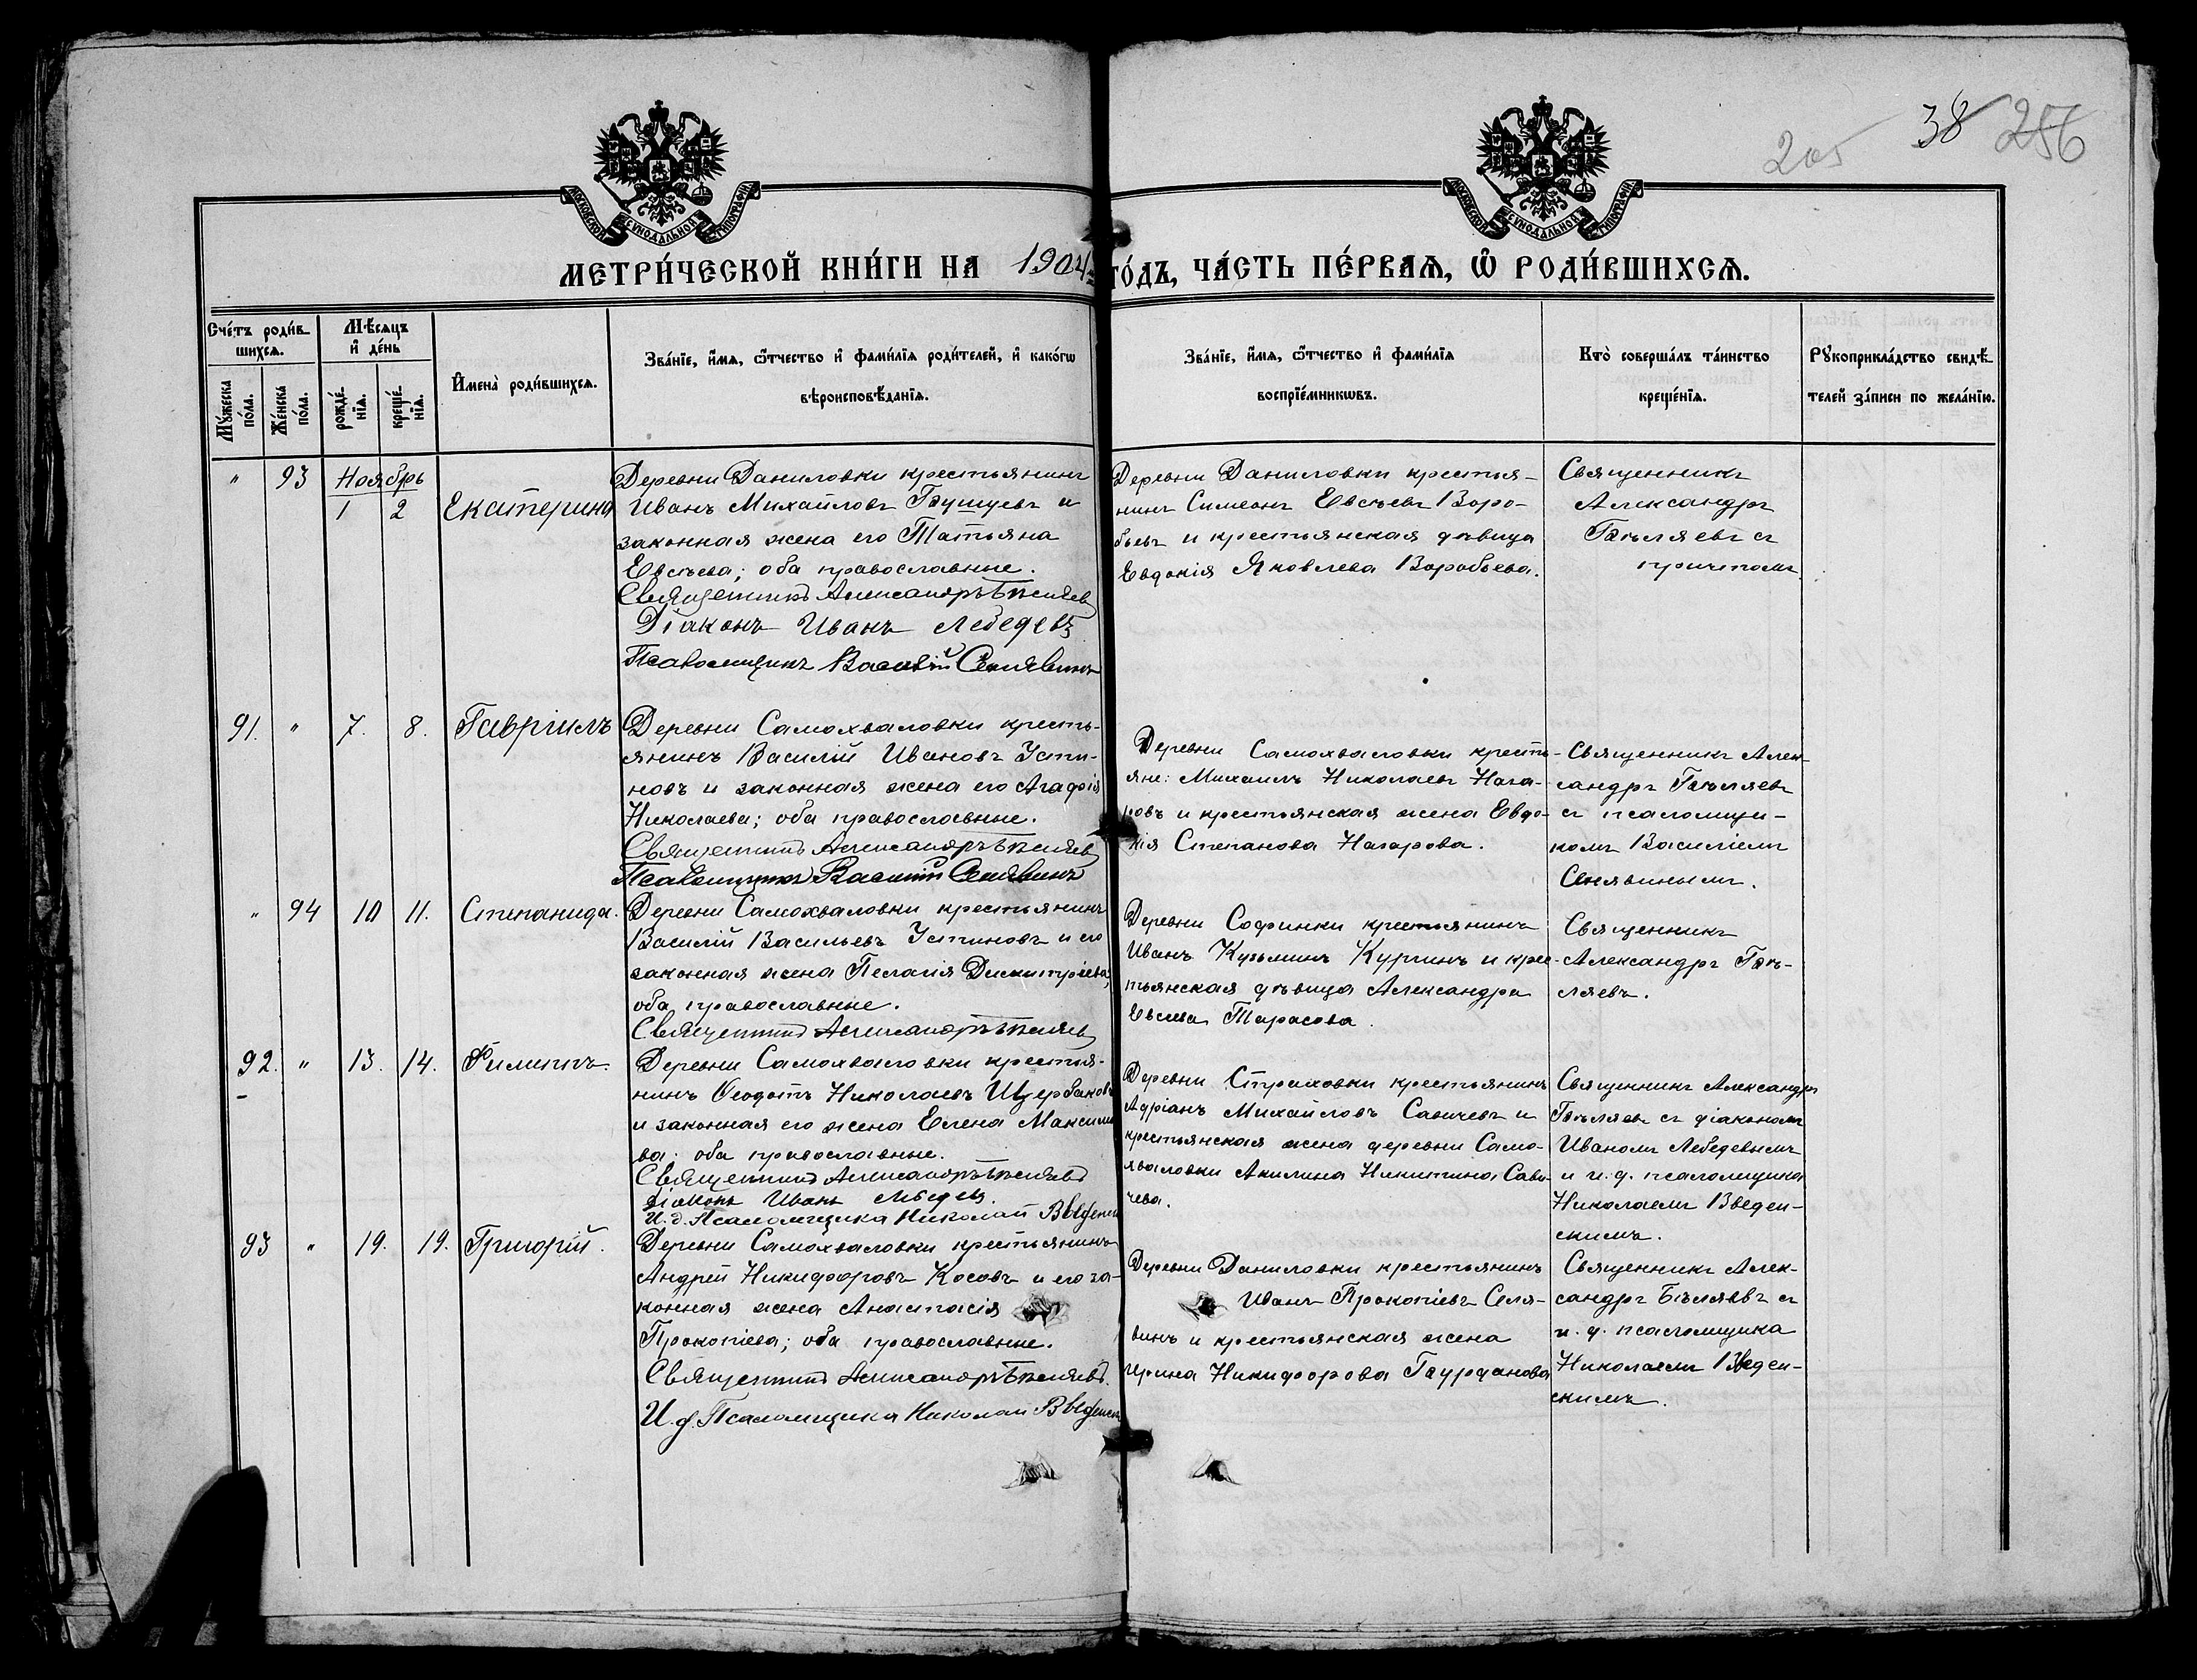 205 38 256
МОСКОВСКОЙ СУНОДАЛЬНОЙ ТИПОГРАФІИ
МОСКОВСКОЙ СУНОДАЛЬНОЙ ТИПОГРАФІИ
МЕТРИ́ЧЕСКОЙ КНИ́ГИ НА 1904 ГО́ДЪ, ЧА́СТЬ ПЕ́РВАѦ, Ѽ РОДИ́ВШИХСѦ.
Сче́тъ роди́в-
шихсѧ.
Мꙋ́жеска по́ла.
Же́нска по́ла.
Мѣ́сѧцъ
и҆ де́нь
рожде́-
нїѧ.
креще́-
нїѧ.
И҆мена̀ роди́вшихсѧ.
Зва́нїе, и҆́мѧ, ѻ҆́тчество и҆ фами́лїѧ роди́телей, и҆ како́гѡ
вѣроисповѣ́данїѧ.
Зва́нїе, и҆́мѧ, ѻ҆́тчество и҆ фами́лїѧ
воспрїе́мникѡвъ.
Кто̀ соверша́лъ та́инство
креще́нїѧ.
Рꙋкоприкла́дство свидѣ́-
телей за́писи по жела́нїю.
" 93 Ноябрь
1 2 Екатерина
Деревни Даниловки крестьянинъ
Иванъ Михайловъ и
законная жена его Татьяна
Евсѣева; оба православные.
Священникъ Александръ Бѣляев
Діаконъ Иванъ Лебедевъ
Псаломщикъ Василій Сенявинъ
Деревни Даниловки крестья-
нинъ Симеонъ Евсѣевъ Воро-
бьевъ и крестьянская дѣвица
Евдокія Яковлева Воробьева.
Священникъ
Александръ
Бѣляевъ съ
причтомъ
91. " 7. 8. Гавріилъ
Деревни Самохваловки кресть-
янинъ Василій Ивановъ Усти-
новъ и законная жена его Агафія
Николаева; оба православные.
Священникъ Александръ Бѣляев
Псаломщикъ Василій Сенявинъ
Деревни Самохваловки кресть-
яне: Михаилъ Николаевъ Наза-
ровъ и крестьянская жена Евдо-
кія Степанова Назарова.
Священникъ Алек-
сандръ Бѣляевъ
съ псаломщи-
комъ Василіемъ
Сенявинымъ.
" 94 10 11. Степанида.
Деревни Самохваловки крестьянинъ
Василій Васильевъ Устиновъ и его
законная жена Пелагія Димитріева;
оба православные.
Священникъ Александръ Бѣляев
Деревни Софинки крестьянинъ
Иванъ Кузьминъ и крес-
тьянская дѣвица Александра
Тарасова.
Священникъ
Александръ Бѣ-
ляевъ.
92. " 13. 14. Филиппъ.
Деревни Самохваловки крестья-
нинъ Ѳеодотъ Николаевъ Щербаковъ
и законная его жена Елена Максимо
ва; оба православные.
Священникъ Александръ Бѣляевъ
Діаконъ Иванъ Лебедевъ.
И. д. Псаломщика Николай Введенск
Деревни Страховки крестьянинъ
Адріанъ Михайловъ Савичевъ и
крестьянская жена деревни Само-
хваловки Акилина Никитина Сави-
чева.
Священникъ Александръ
Бѣляевъ съ діакономъ
Иваномъ Лебедевымъ
и и. д. псаломщика
Николаемъ Введен-
скимъ.
93 " 19. 19. Григорій.
Деревни Самохваловки крестьянинъ
Андрей Никифоровъ Косовъ и его за-
конная жена Анастасія
Прокопіева; оба православные.
Священникъ Александръ Бѣляевъ.
И. д. Псаломщика Николай Введенск
Деревни Даниловки крестьянинъ
Иванъ Прокопіевъ Селя-
винъ и крестьянская жена
Ирина Никифорова
Священникъ Алек-
сандръ Бѣляевъ съ
и. д. псаломщика
Николаемъ Введен-
скимъ.